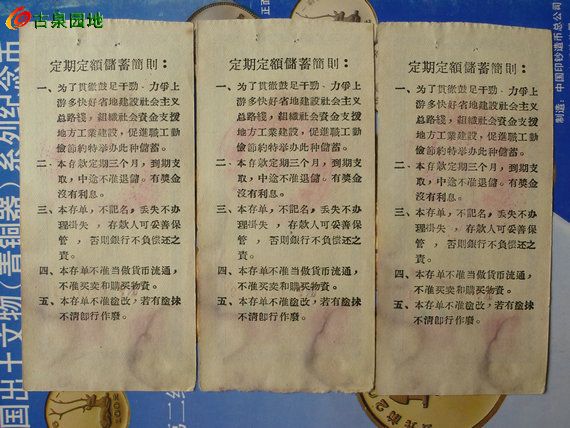 古泉园地
定期定額儲蓄簡則：
一、为了貫徹鼓足干勁、力爭上
游多快好省地建設社会主义
总路綫，組織社会資金支援
地方工業建設，促進職工勤
儉節約特举办此种儲蓄。
二、本存款定期三个月，到期支
取，中途不准退儲。有奬金
沒有利息。
三、本存单，不記名，丢失不办
理掛失，存款人可妥善保
管，否則銀行不負償还之
責。
四、本存单不准当做貨币流通，
不准买卖和購买物資。
五、本存单不准塗改，若有塗抹
不清卽行作廢。
定期定額儲蓄簡則：
一、为了貫徹鼓足干勁、力爭上
游多快好省地建設社会主义
总路綫，組織社会資金支援
地方工業建設，促進職工勤
儉節約特举办此种儲蓄。
二、本存款定期三个月，到期支
取，中途不准退儲。有奬金
沒有利息。
三、本存单，不記名，丢失不办
理掛失，存款人可妥善保
管，否則銀行不負償还之
責。
四、本存单不准当做貨币流通，
不准买卖和購买物資。
五、本存单不准塗改，若有塗抹
不清卽行作廢。
定期定額儲蓄簡則：
一、为了貫徹鼓足干勁、力爭上
游多快好省地建設社会主义
总路綫，組織社会資金支援
地方工業建設，促進職工勤
儉節約特举办此种儲蓄。
二、本存款定期三个月，到期支
取，中途不准退儲。有奬金
沒有利息。
三、本存单，不記名，丢失不办
理掛失，存款人可妥善保
管，否則銀行不負償还之
責。
四、本存单不准当做貨币流通，
不准买卖和購买物資。
五、本存单不准塗改，若有塗抹
不清卽行作廢。
国出土文物（青铜器）系列纪念币
正面
制造：中国印钞造币总公司
第二组